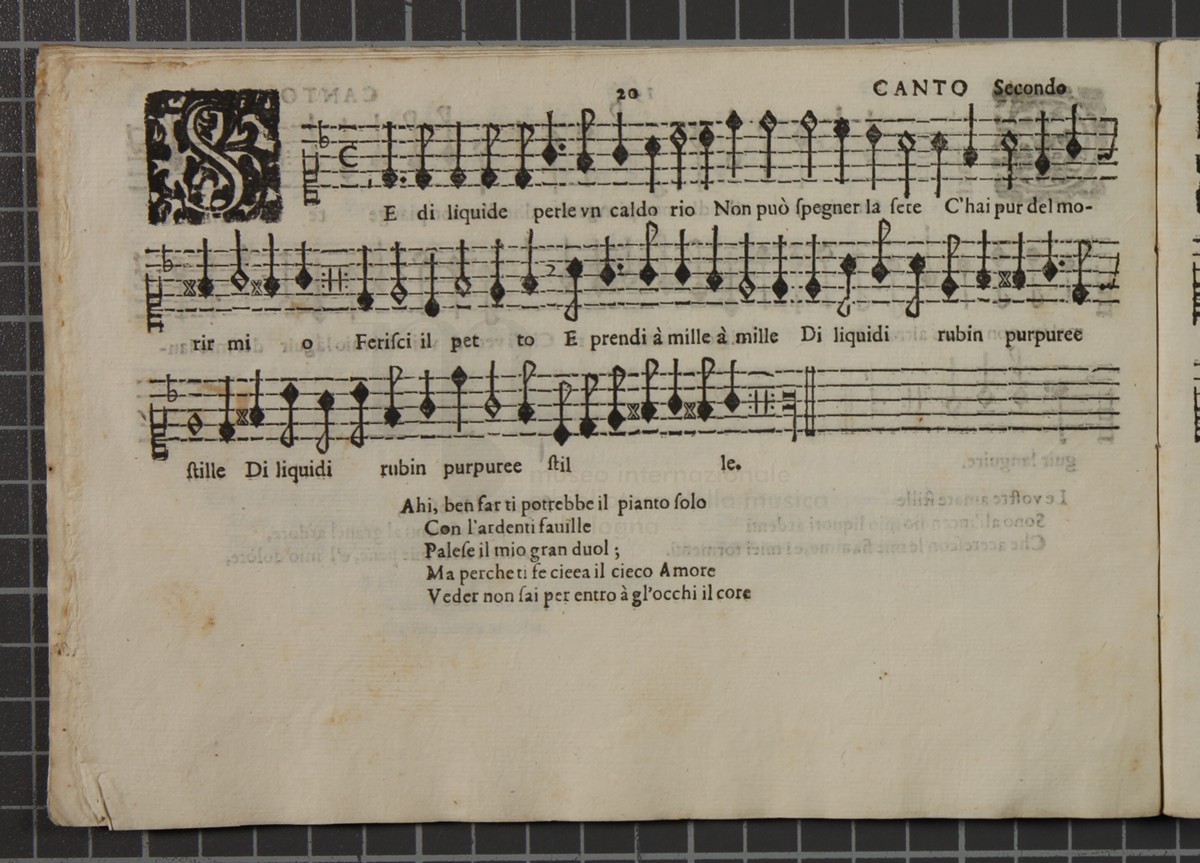 20 CANTO Secondo
S E di liquide perle vn caldo rio Non può ſpegner la ſete C'hai pur del mo-
rir mi o Feriſci il pet to E prendi à mille à mille Di liquidi rubin purpuree
ſtille Di liquidi rubin purpuree ſtil le.
Ahi, ben far ti potrebbe il pianto ſolo
Con l'ardenti fauille
Paleſe il mio gran duol ;
Ma perche ti fe cieea il cieco Amore
Veder non ſai per entro à gl'occhi il core
museo internazionale
della musica